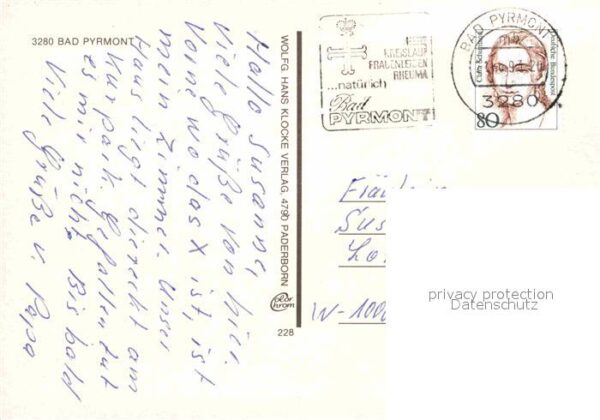 3280 BAD PYRMONT
Hallo Susanne,
viele Grüße von hier.
Vorne wo das X ist, ist
mein Zimmer. Unser
Haus liegt direckt am
Kurpark. Gefallen tut
es mir nicht. Bis bald
Viele Grüße v. Papa
WOLFG. HANS KLOCKE VERLAG, 4790 PADERBORN
color chrom
228
HERZ
KREISLAUF
FRAUENLEIDEN
RHEUMA
...natürlich
Bad
PYRMONT
BAD PYRMONT
3280
Clara Schumann
Deutsche Bundespost
80
Fräulein
Sus
W-1000
privacy protection
Datenschutz